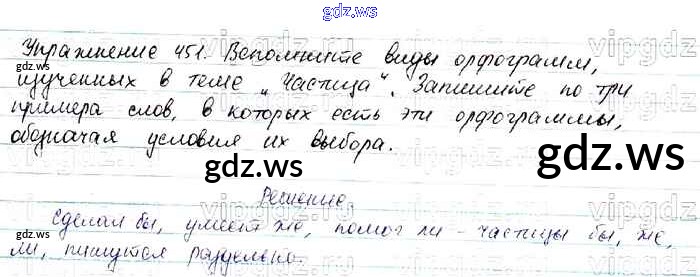 gdz.ws
Упражнение 451. Вспомните виды орфограмм,
изученных в теме „Частица“. Запишите по три
примера слов, в которых есть эти орфограммы,
обозначая условия их выбора.
gdz.ws
Решение.
Сделал бы, умеет же, помог ли - частицы бы, же,
ли, пишутся раздельно.
gdz.ws